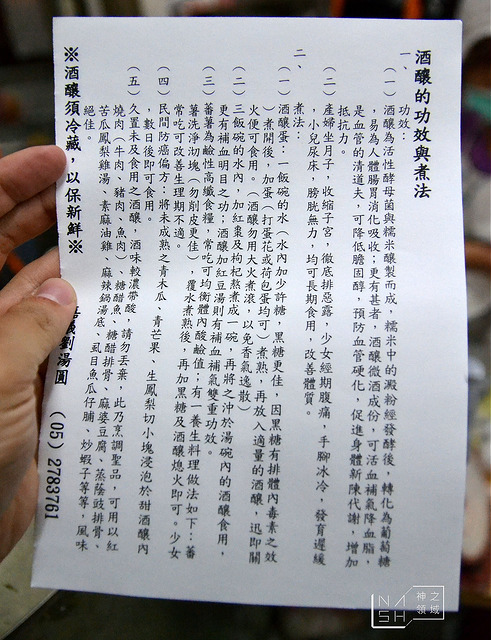 酒釀的功效與煮法
一、功效:
(一)酒釀為活性酵母菌與糯米釀製而成,糯米中的澱粉經發酵後,轉化為葡萄糖
,易為人體腸胃消化吸收;更有甚者,酒釀微酒成份,可活血補氣降血脂,
是血管的清道夫,可降低膽固醇,預防血管硬化,促進身體新陳代謝,增加
抵抗力。
(二)產婦坐月子,收縮子宮,徹底排惡露,少女經期腹痛,手腳冰冷,發育遲緩
,小兒尿床,膀胱無力,均可長期食用,改善體質。
二、煮法:
(一)酒釀蛋:一飯碗的水(水內加少許糖,黑糖更佳,因黑糖有排體內毒素之效
)煮開後,加蛋(打蛋花或荷包蛋均可)煮熟,再放入適量的酒釀,迅即關
火便可食用。(酒釀勿用大火煮滾,以免香氣逸散)
(二)三飯碗的水內,加紅棗及枸杞熬煮成一碗,再將之沖於湯碗內的酒釀食用,
更有補血明目之功;酒釀加紅豆湯則有補血補氣雙重功效。
(三)蕃薯為鹼性高纖食糧,常吃可均衡體內酸鹼值;有一養生料理做法如下:蕃
薯洗淨切塊(勿削皮更佳),覆水煮熟後,再加黑糖及酒釀熄火即可。少女
常吃可改善生理期不適。
(四)民間防癌偏方:將未成熟之青木瓜、青芒果、生鳳梨切小塊浸泡於甜酒釀內
,數日後即可食用。
(五)久置未及食用之酒釀,酒味較濃帶酸,請勿丟棄,此乃烹調聖品,可用以紅
燒肉(牛肉、豬肉、魚肉)、糖醋魚、糖醋排骨、麻婆豆腐、蒸蔭豉排骨、
苦瓜鳳梨雞湯、素麻油雞、麻辣鍋湯底、虱目魚瓜仔脯、炒蝦子等等,風味
絕佳。
※酒釀須冷藏,以保新鮮※
劉湯圓 (05)2783761
NASH 神之領域